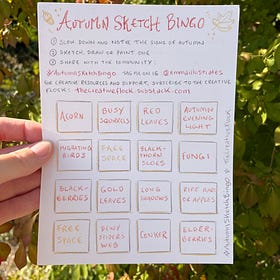 AUTUMN SKETCH BINGO
① SLOW DOWN AND NOTICE THE SIGNS OF AUTUMN
② SKETCH, DRAW OR PAINT ONE
③ SHARE WITH THE COMMUNITY!
#AUTUMNSKETCHBINGO TAG ME ON IG @EMMAILLUSTRATES
FOR CREATIVE RESOURCES AND SUPPORT, SUBSCRIBE TO THE CREATIVE
FLOCK: THECREATIVEFLOCK.SUBSTACK.COM
ACORN
BUSY
SQUIRRELS
RED
LEAVES
AUTUMN
EVENING
LIGHT
MIGRATING
BIRDS
FREE
SPACE
BLACK-
THORN
SLOES
FUNGI
BLACK-
BERRIES
GOLD
LEAVES
LONG
SHADOWS
RIPE RED
OR APPLES
FREE
SPACE
DEWY
SPIDERS
WEB
CONKER
ELDER-
BERRIES
#AUTUMNSKETCHBINGO